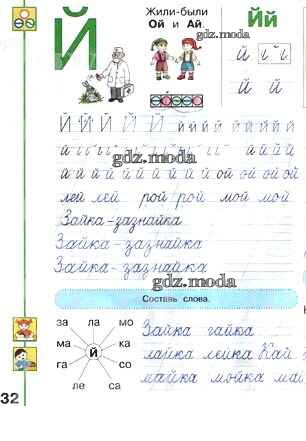 Й
Жили-были
Ой и Ай.
gdz.moda
Йй
й й
й й
gdz.moda
Й Й Й Й Й й й й й й й й й й
gdz.moda
й й й й й й й й ой ой ой ой
лей лей рой рой мой мой
Зайка-зазнайка
Зайка-зазнайка
Зайка-зазнайка
gdz.moda
Составь слова.
за ла мо
ма й ка
га со
ле са
Зайка гайка
лайка лейка Кай
майка мойка
gdz.moda
32